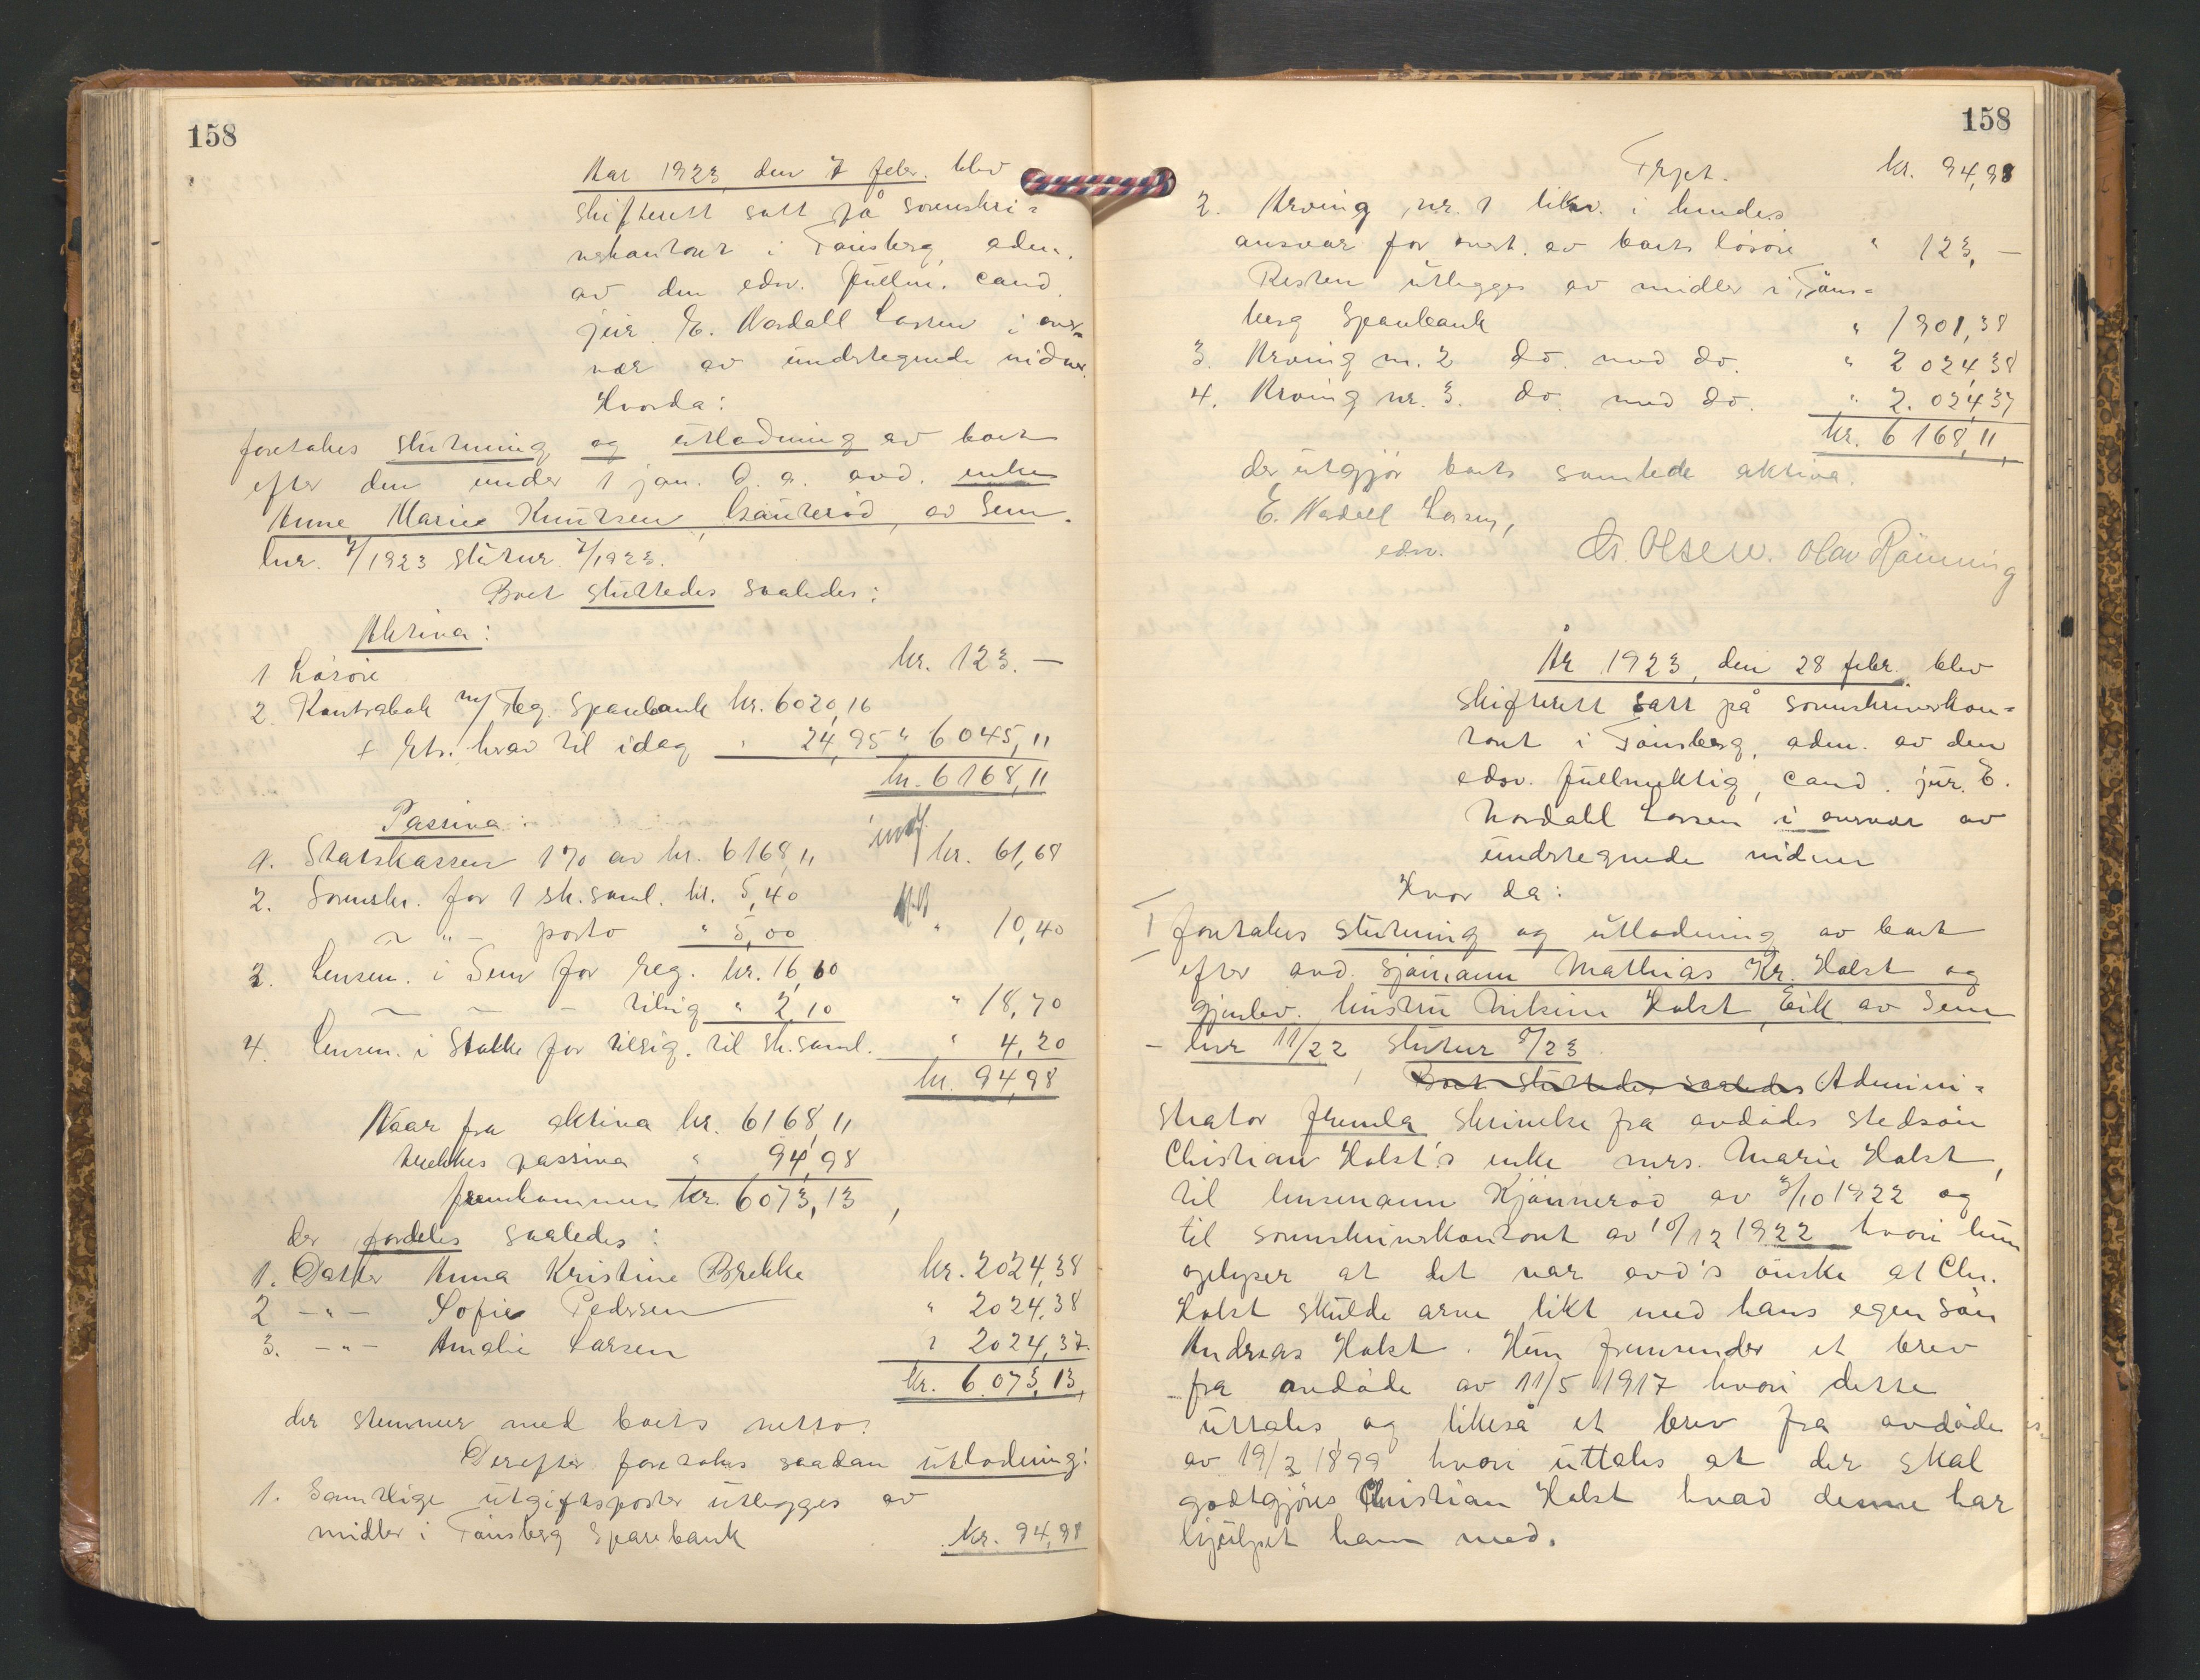 158
Aar 1923, den 7 febr. blev
skifterett satt på sorenskri=
verkontoret i Tönsberg, adm.
av den edsv. fullm. cand.
jur. E. Nordall Larsen i over=
vær av undertegnede vidner.
Hvorda:
foretokes slutning og utlodning av boet
efter den under 1 jan. d. a. avd. enke
Anne Marie Knutsen, Gauteröd, av Sem.
lnr. 7/1923 slutnr. 7/1923.
Boet sluttedes saaledes:
Aktiva:
1 Lösöre kr. 123.—
2. Kontrabok m/ Tbg. Sparebank kr. 6020,16
+ rtr. herav til idag " 24,95 " 6045,11
kr. 6168,11
Passiva:
1. Statskassen 1% av kr. 6168,11 kr. 61,68
2. Sorenskr. for 1 sk.saml. kr. 5,40
— " — porto " 5,00 " 10,40
3. Lensm. i Sem for reg. kr. 16,60
— — — tilsig. " 2,10 " 18,70
4. Lensm. i Stokke for tilsig. til sk.saml. " 4,20
kr. 94,98
Naar fra aktiva kr. 6168,11
trekkes passiva " 94,98
fremkommer kr. 6073,13,
der fordeles saaledes:
1. Datter Anna Kristine Brekke kr. 2024,38
2 — " — Sofie Pedersen " 2024,38
3. — " — Amalie Larsen " 2024,37.
kr. 6.073,13,
der stemmer med boets netto.
Derefter foretokes saadan utlodning:
1. Samtlige utgiftsposter utlegges av
midler i Tönsberg Sparebank kr. 94,98
158
Trpt. kr. 94,98
2. Arving nr. 1 likv. i hendes
ansvar for overt. av boets lösöre " 123,—
Resten utlegges av midler i Töns=
berg Sparebank " 1901,38
3. Arving nr. 2 do. med do. " 2024,38
4. Arving nr. 3. do. med do. " 2.024,37
kr. 6168,11,
der utgjör boets samlede aktiva.
E. Nordall Larsen,
edsv. Olsen. Olav Rönning
År 1923, den 28 febr. blev
skifterett satt på sorenskriverkon=
toret i Tönsberg, adm. av den
edsv. fullmektig, cand. jur. E.
Nordall Larsen i overvær av
undertegnede vidner
Hvor da:
I foretokes slutning og utlodning av boet
efter avd. sjömann Mathias Kr. Holst og
gjenlev. hustru Nikoline Holst, Eik av Sem
— lnr 11/22 slutnr 8/23.
Boet sluttedes saaledes Admini=
strator fremla skrivelse fra avdödes stedsön
Christian Holst's enke mrs. Marie Holst,
til lensmann Kjönneröd av 3/10 1922 og
til sorenskriverkontoret av 10/12 1922 hvori hun
oplyser at det var avd's önske at Chr.
Holst skulde arve likt med hans egen sön
Andreas Holst. Hun fremsender et brev
fra avdöde av 11/5 1917 hvori dette
uttales og likeså et brev fra avdöde
av 19/3 1899 hvori uttales at der skal
godtgjöres Christian Holst hvad denne har
hjulpet ham med.